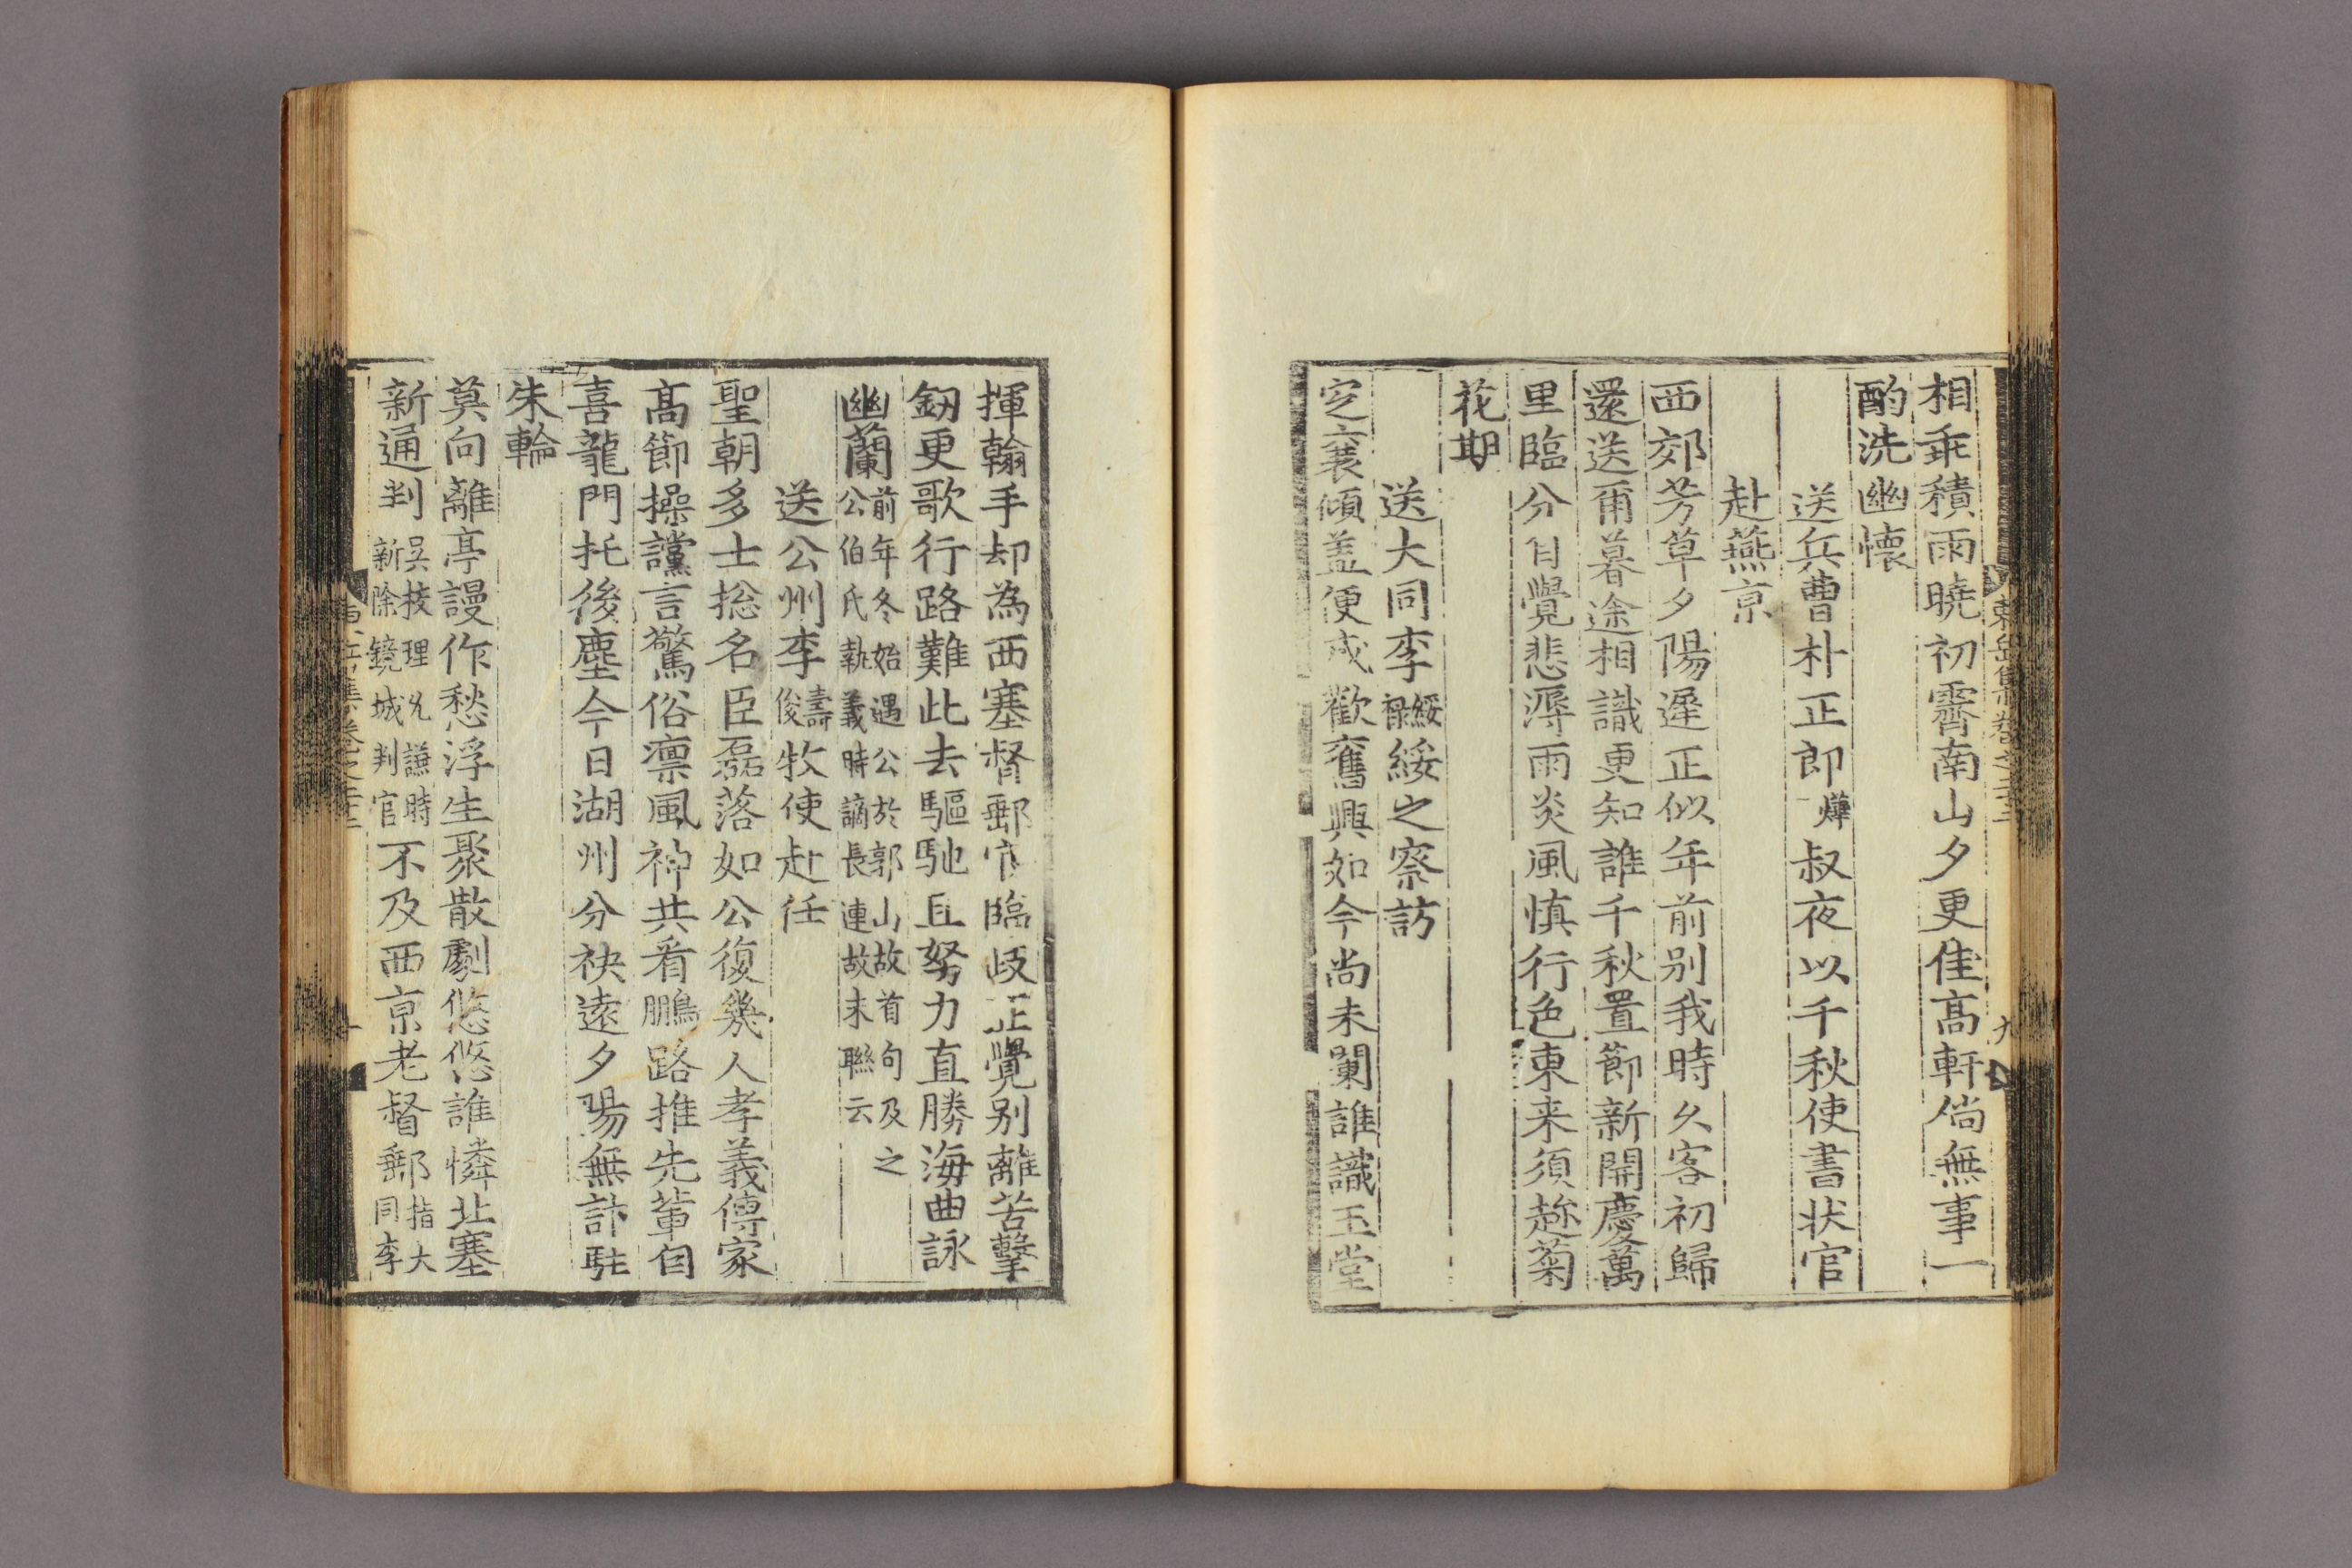 相乖積雨曉初霽南山夕更佳高軒倘無事一
酌洗幽懷
送兵曹朴正郎燁叔夜以千秋使書状官
赴燕京
西郊芳草夕陽遲正似年前別我時久客初歸
還送爾暮途相識更知誰千秋置節新開慶萬
里臨分自覺悲溽雨炎風慎行色東来須趂菊
花期
送大同李綏祿綏之察訪
定襄傾盖便成歡奮興如今尚未闌誰識玉堂
揮翰手却為西塞督郵官臨歧正覺別離苦擊
釼更歌行路難此去驅馳且努力直勝海曲詠
幽蘭前年冬始遇公於郭山故首句及之
公伯氏執義時謫長連故末聯云
送公州李壽俊牧使赴任
聖朝多士捴名臣磊落如公復幾人孝義傳家
高節操讜言驚俗凛風神共看鵬路推先輩自
喜龍門托後塵今日湖州分袂遠夕陽無計駐
朱輪
莫向離亭謾作愁浮生聚散劇悠悠誰憐北塞
新通判吳校理允謙時新除鏡城判官不及西京老督郵指大同李